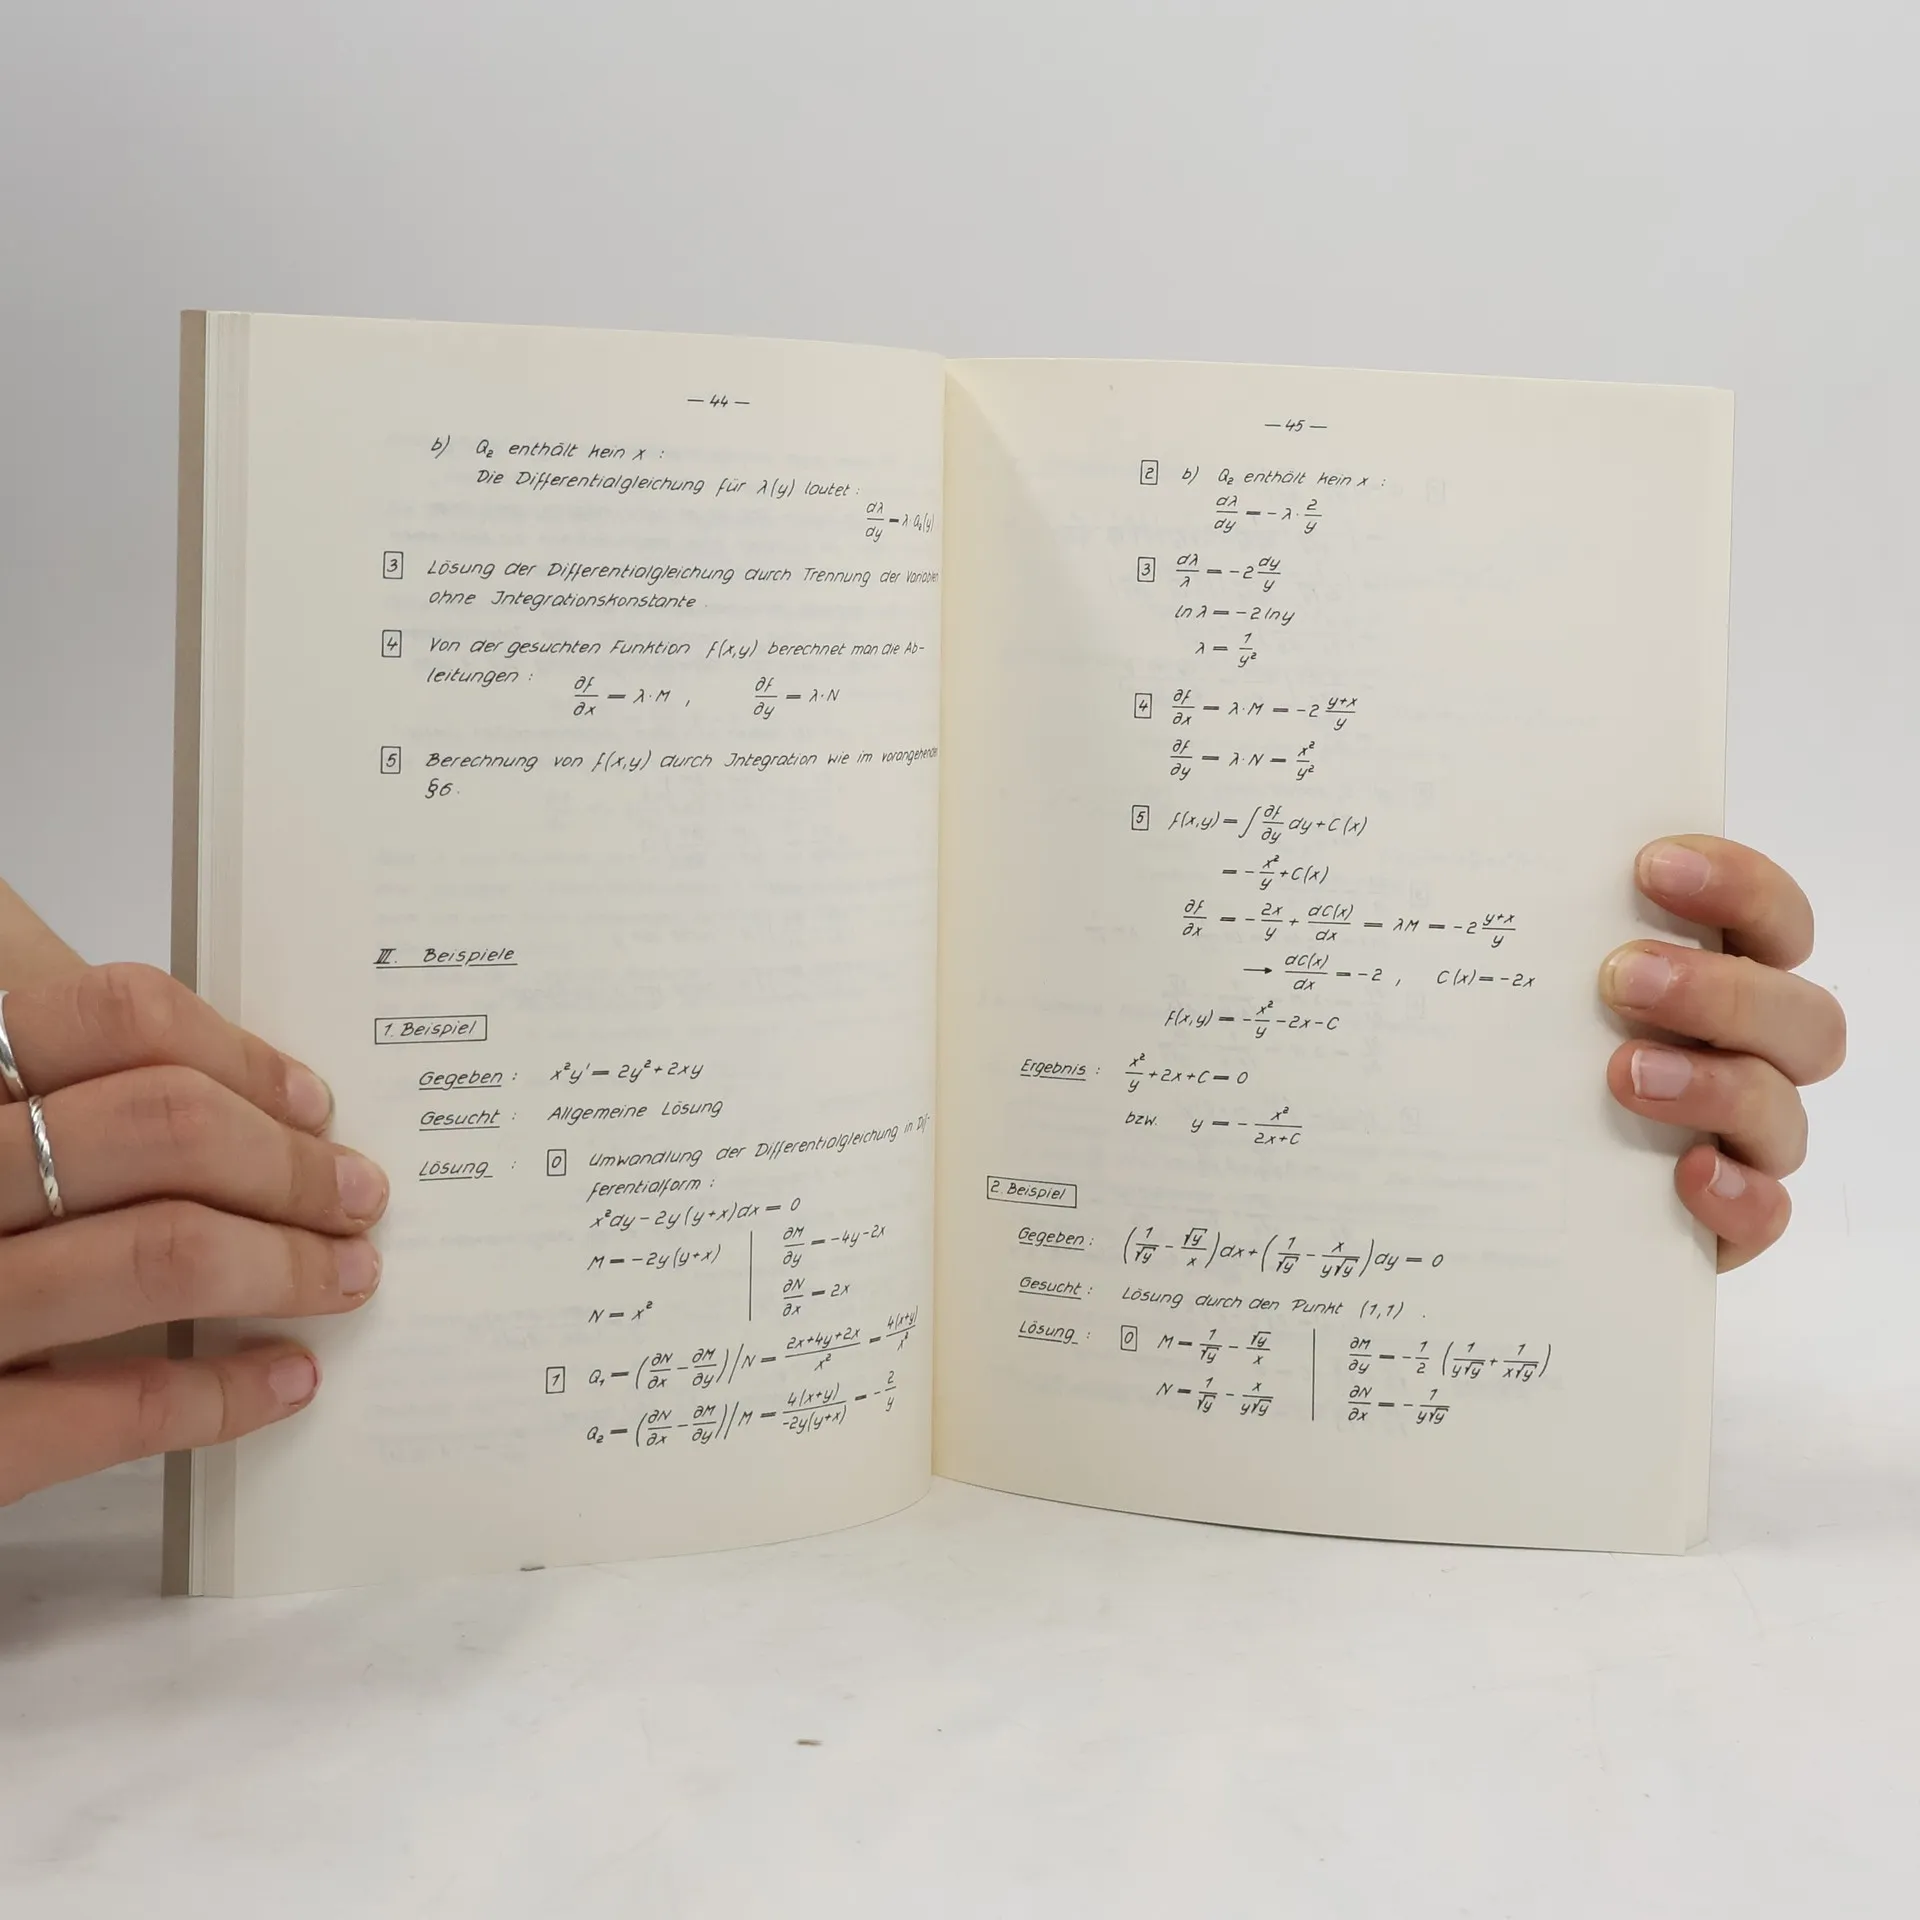 — 44 —
b) Q₂ enthält kein x :
Die Differentialgleichung für λ(y) lautet :
dλ/dy = λ·Q₂(y)
3 Lösung der Differentialgleichung durch Trennung der Variablen
ohne Integrationskonstante .
4 Von der gesuchten Funktion f(x,y) berechnet man die Ab-
leitungen : ∂f/∂x = λ·M , ∂f/∂y = λ·N
5 Berechnung von f(x,y) durch Integration wie im vorangehenden
§6 .
III. Beispiele
1. Beispiel
Gegeben : x²y' = 2y² + 2xy
Gesucht : Allgemeine Lösung
Lösung : 0 Umwandlung der Differentialgleichung in Dif-
ferentialform :
x²dy − 2y(y+x)dx = 0
M = −2y(y+x) | ∂M/∂y = −4y−2x
N = x² | ∂N/∂x = 2x
1 Q₁ = (∂N/∂x − ∂M/∂y)/N = (2x+4y+2x)/x² = 4(x+y)/x²
Q₂ = (∂N/∂x − ∂M/∂y)/M = 4(x+y)/(−2y(y+x)) = −2/y
— 45 —
2 b) Q₂ enthält kein x :
dλ/dy = −λ·2/y
3 dλ/λ = −2 dy/y
ln λ = −2 ln y
λ = 1/y²
4 ∂f/∂x = λ·M = −2 (y+x)/y
∂f/∂y = λ·N = x²/y²
5 f(x,y) = ∫ ∂f/∂y dy + C(x)
= −x²/y + C(x)
∂f/∂x = −2x/y + dC(x)/dx = λM = −2 (y+x)/y
→ dC(x)/dx = −2 , C(x) = −2x
f(x,y) = −x²/y − 2x − C
Ergebnis : x²/y + 2x + C = 0
bzw. y = −x²/(2x+C)
2. Beispiel
Gegeben : (1/√y − √y/x)dx + (1/√y − x/(y√y))dy = 0
Gesucht : Lösung durch den Punkt (1,1) .
Lösung : 0 M = 1/√y − √y/x | ∂M/∂y = −1/2 (1/(y√y) + 1/(x√y))
N = 1/√y − x/(y√y) | ∂N/∂x = −1/(y√y)